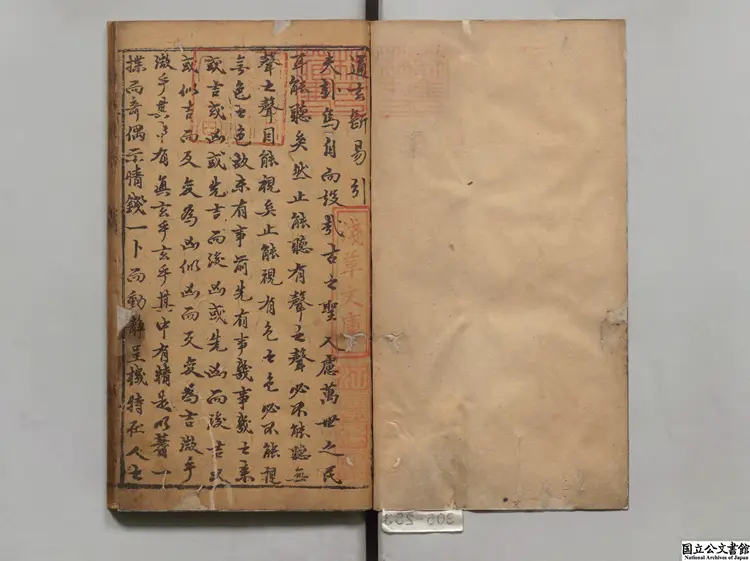 通玄斷易引
夫易焉自而設哉古之聖人慮萬世之民
耳能聽矣然止能聽有聲之聲必不能聽無
聲之聲目能視矣止能視有色之色必不能視
無色之色故未有事前先有事幾事幾之來
或吉或凶或先吉而後凶或先凶而後吉又
或似吉而反變為凶似凶而反變為吉微乎
微乎其中有真玄乎玄乎其中有精是以蓍一
揲而奇偶示情錢一卜而動靜呈機特在人之
淺草文庫
305-253
国立公文書館
National Archives of Japan